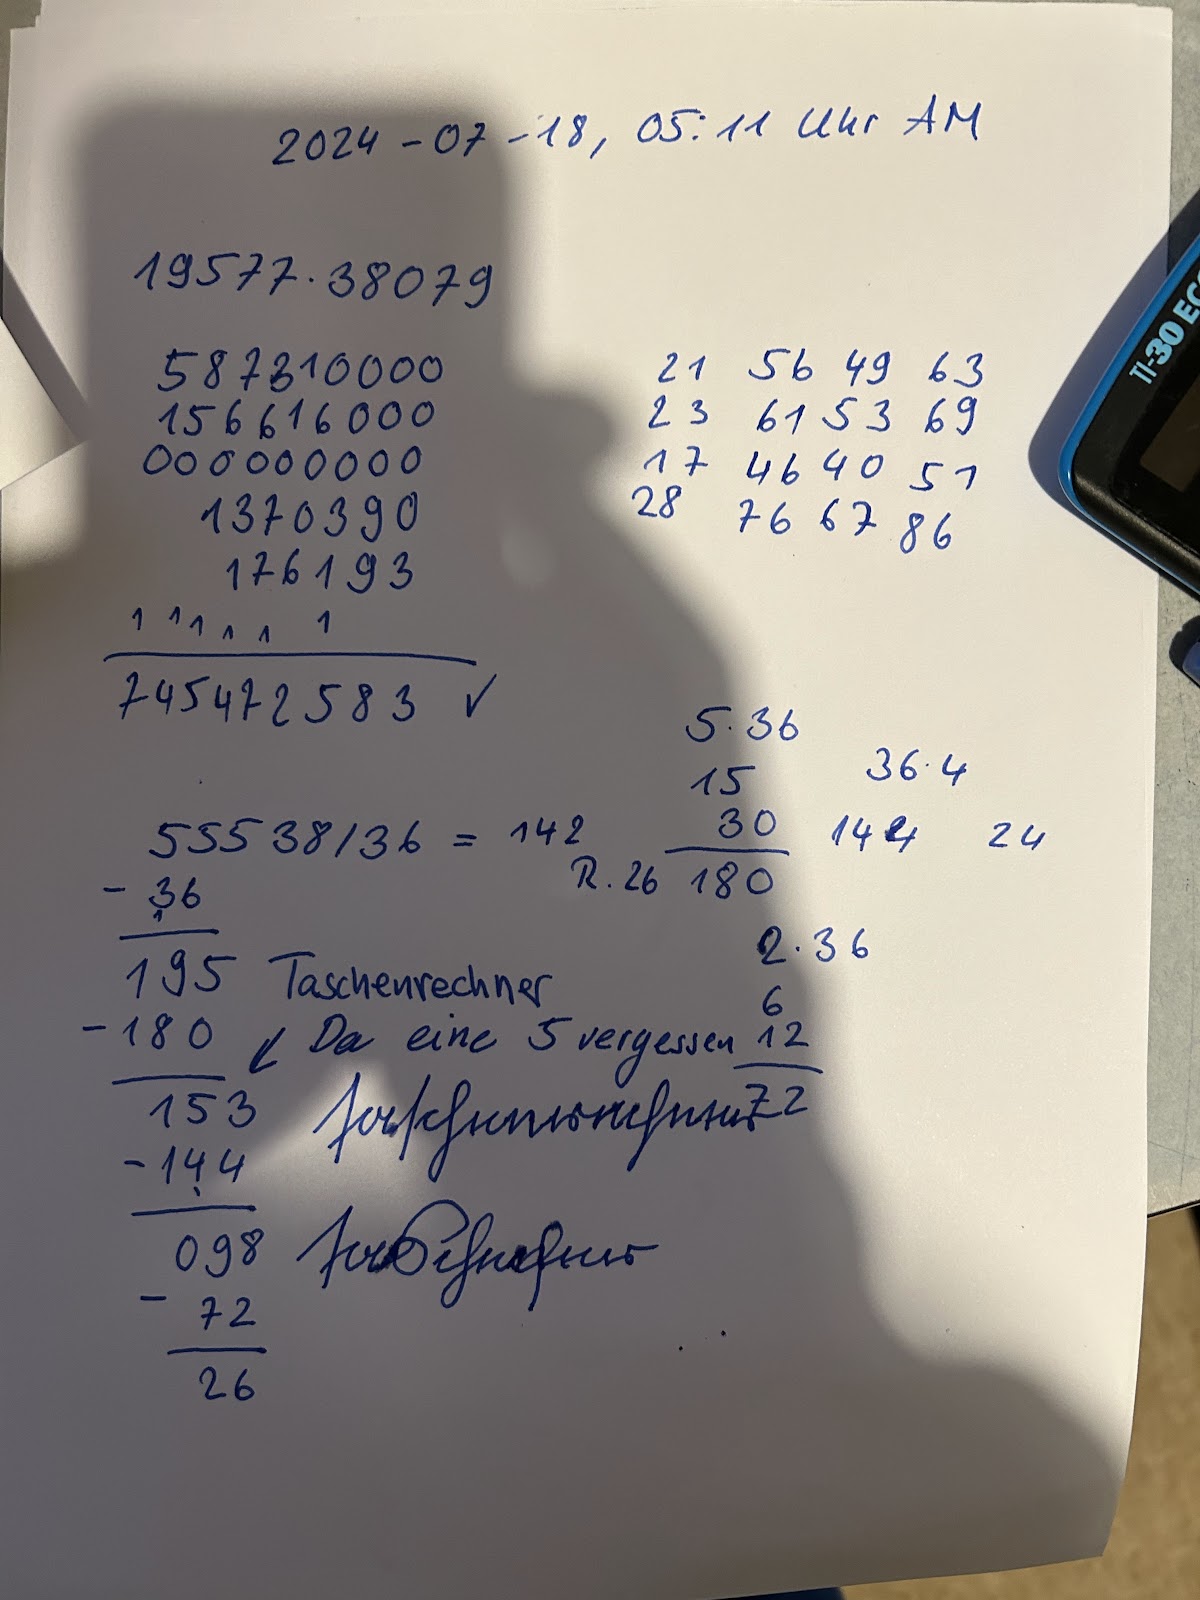 2024-07-18, 05:11 Uhr AM
19577·38079
587310000
156616000
000000000
1370390
176193
1 1 1 1 1 1
745472583 ✓
21 56 49 63
23 61 53 69
17 46 40 51
28 76 67 86
TI-30 ECO
5·36
15
30
180
36·4
144 24
55538/36 = 142
R. 26
- 36
1
195 Taschenrechner
- 180 ↙ Da eine 5 vergessen
153
- 144
098
- 72
26
2·36
6
12
72